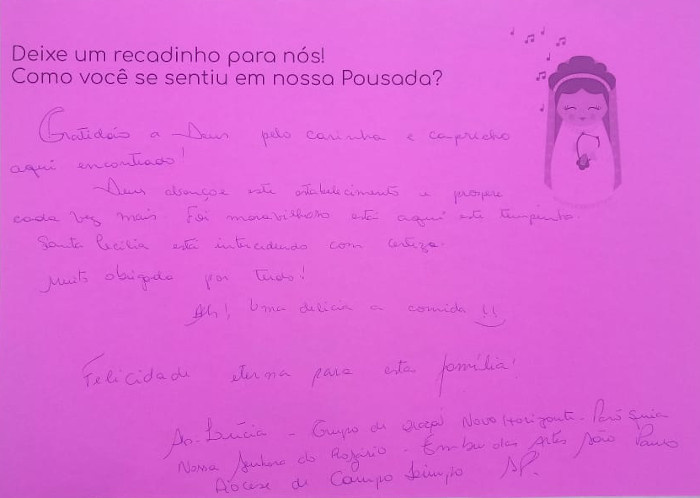 Deixe um recadinho para nós!
Como você se sentiu em nossa Pousada?
Gratidão a Deus pelo carinho e capricho
aqui encontrado!
Deus abençoe este estabelecimento e prospere
cada vez mais. Foi maravilhoso está aqui este tempinho.
Santa Cecília está intercedendo com certeza.
Muito obrigado por tudo!
Ah! Uma delícia a comida!!
Felicidade eterna para esta família!
Lúcia - Grupo de Oração Novo Horizonte - Paróquia
Nossa Senhora do Rosário - Embu das Artes São Paulo
Diocese de Campo Limpo SP.